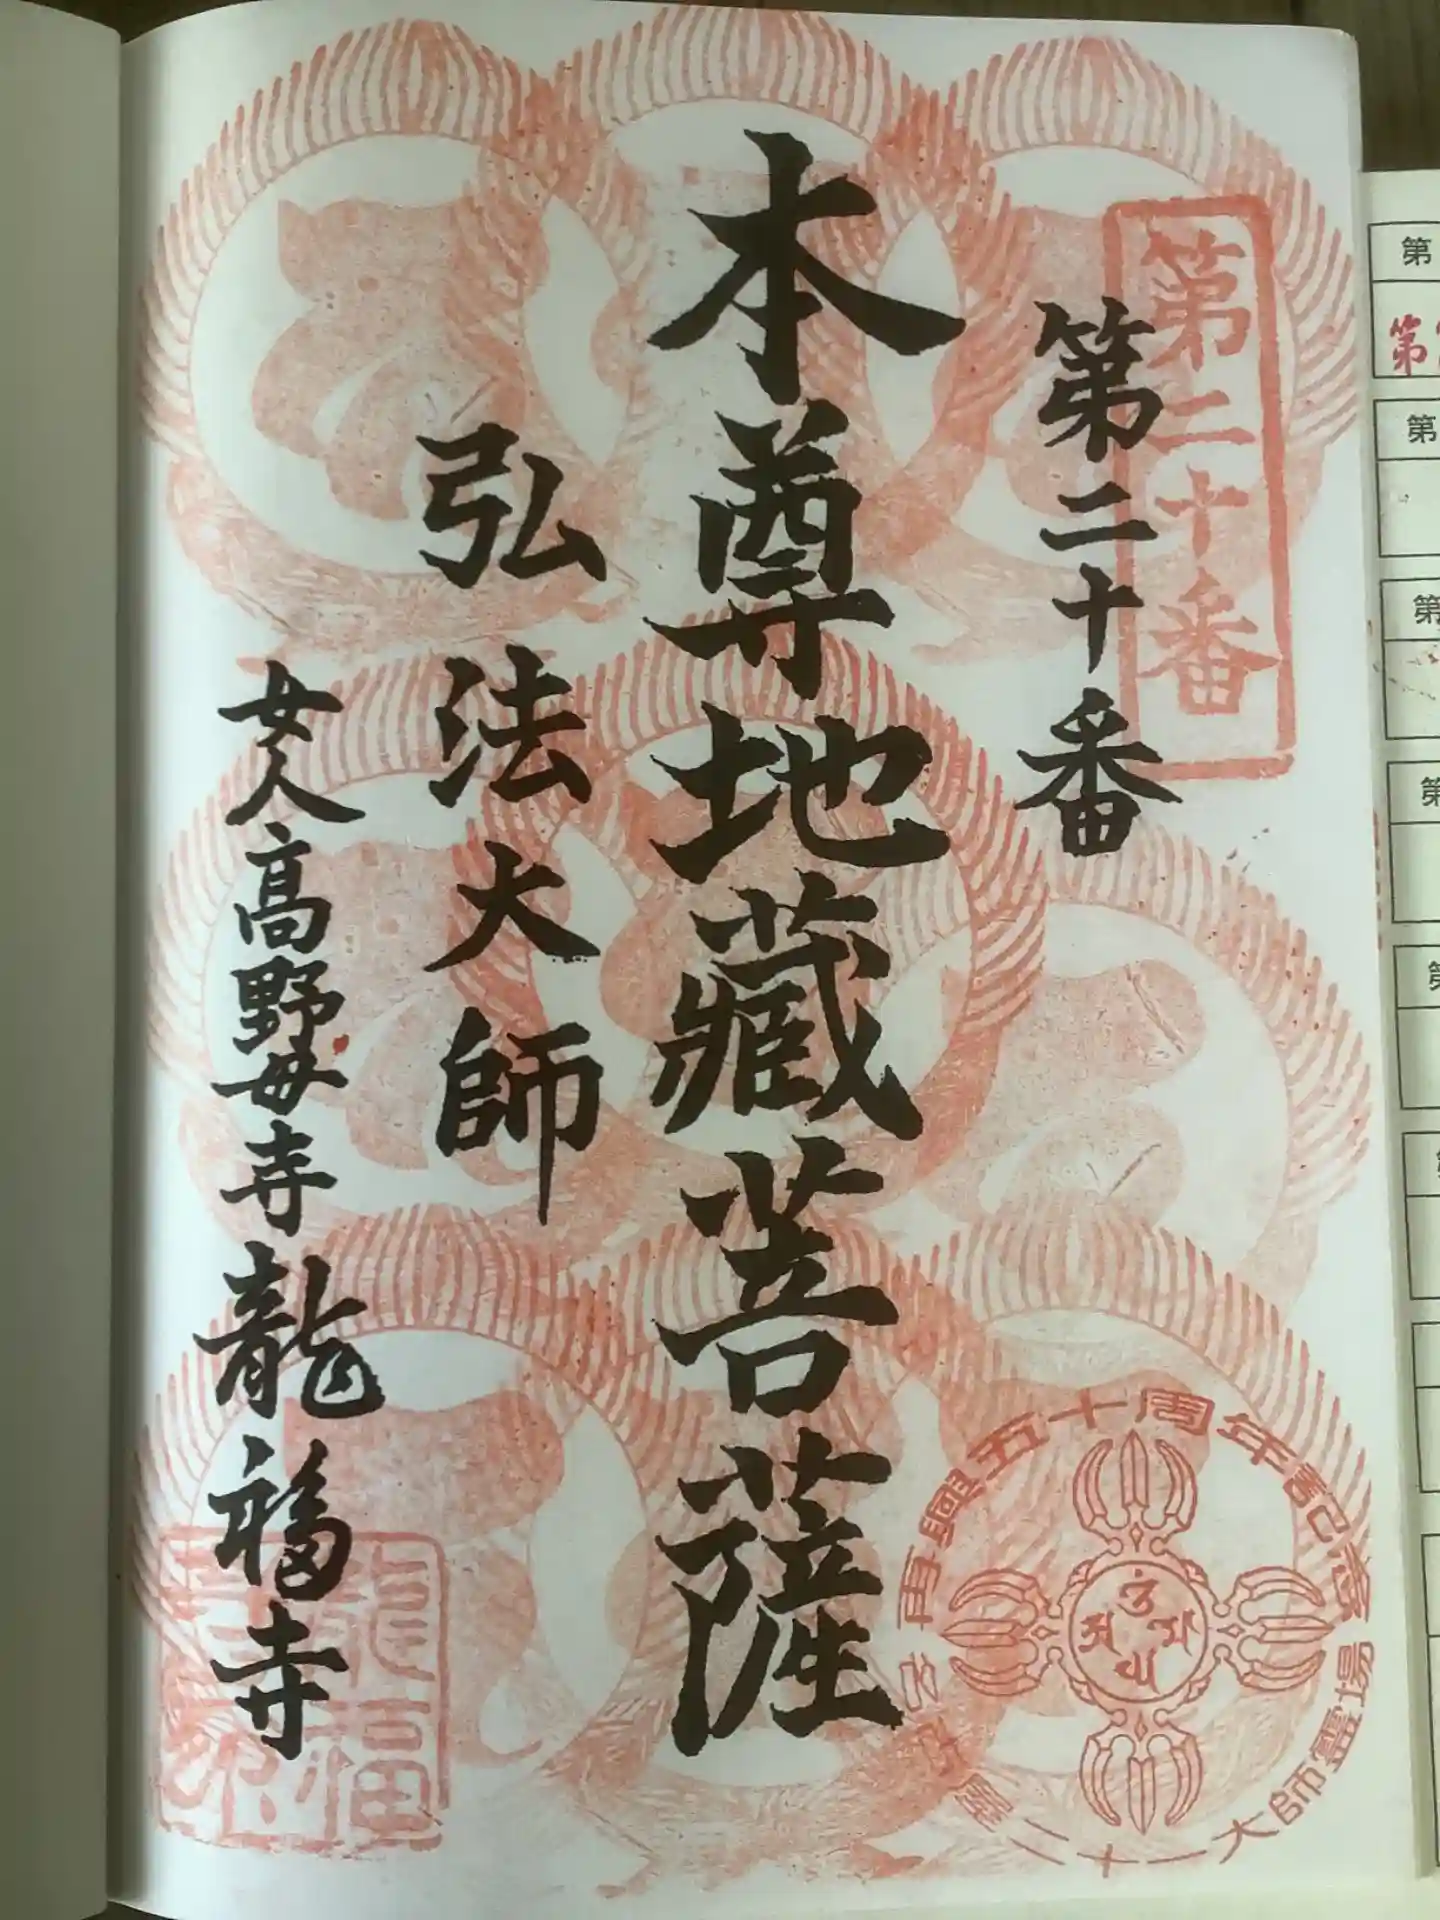 第二十番
第二十番
本尊地藏菩薩
弘法大師
女人高野毋寺龍福寺
再興五十周年記念
二十一大師靈場
龍福
第
第
第
第
第